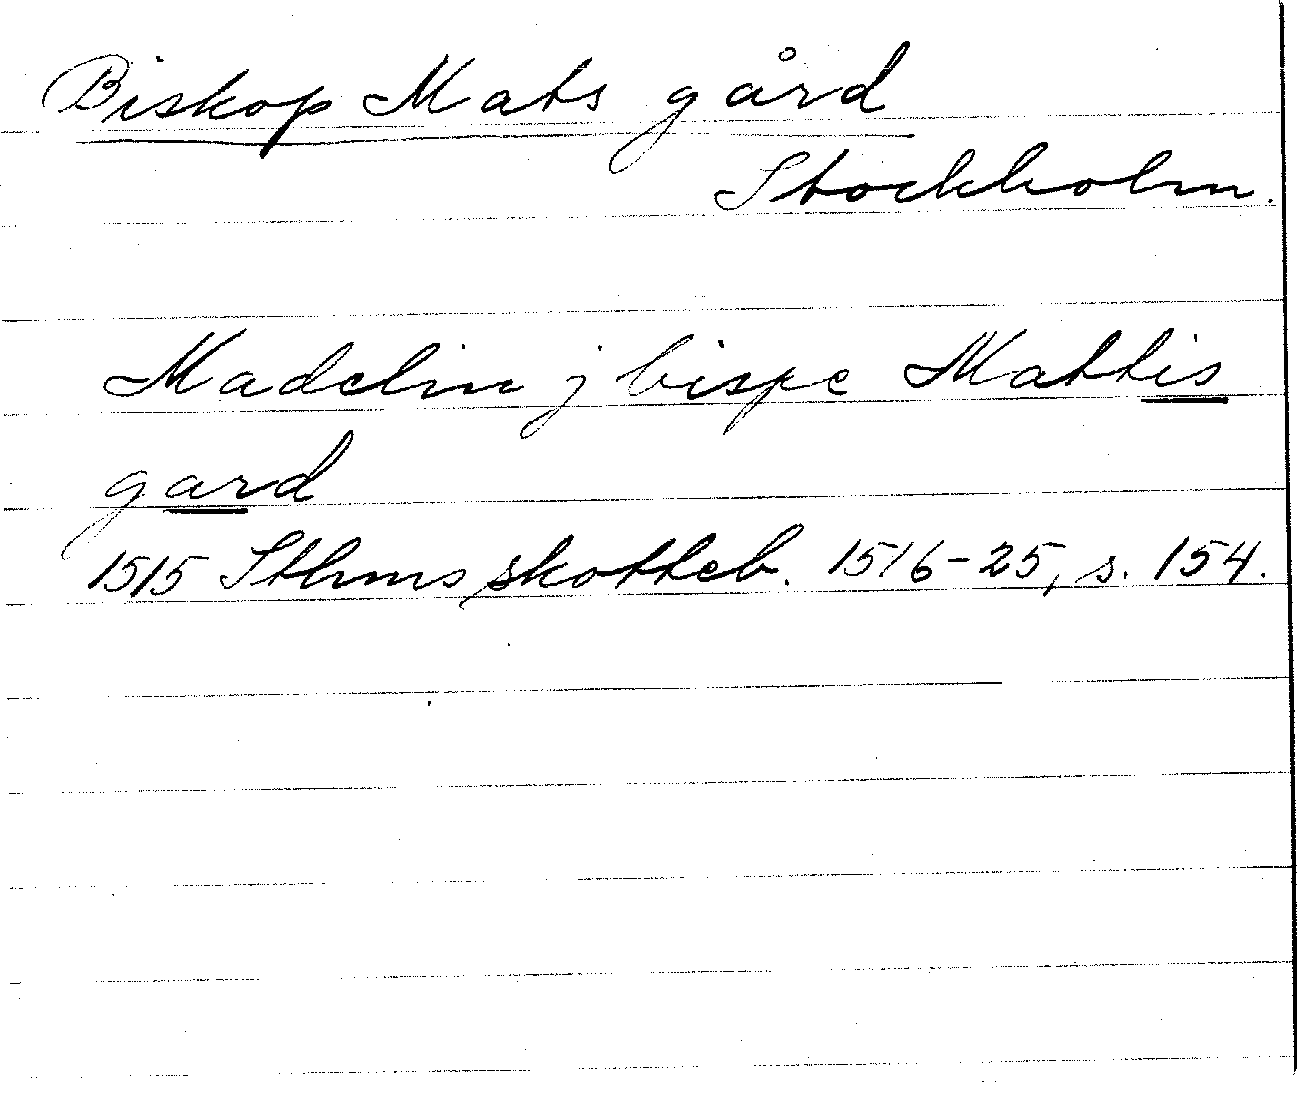 Biskop Mats gård
Stockholm.
Madelin j bispe Mattis
gard
1515 Sthms skotteb. 1516-25, s. 154.